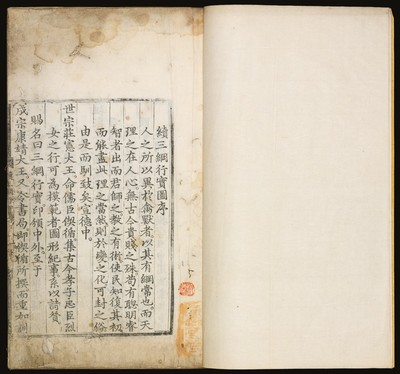 續三綱行實圖序
人之所以異於禽獸者以其有綱常也而天
理之在人心無古今貴賤之殊苟有聰明睿
智者出而君師之教之有術使民知復其初
而能盡此理之當然則於變之化可封之俗
由是而馴致矣宣德中
世宗莊憲大王命儒臣偰循集古今孝子忠臣烈
女之行可為模範者圖形紀事系以詩贊
賜名曰三綱行實印頒中外至于
成宗康靖大王又令書局即偰循所撰而重加刪